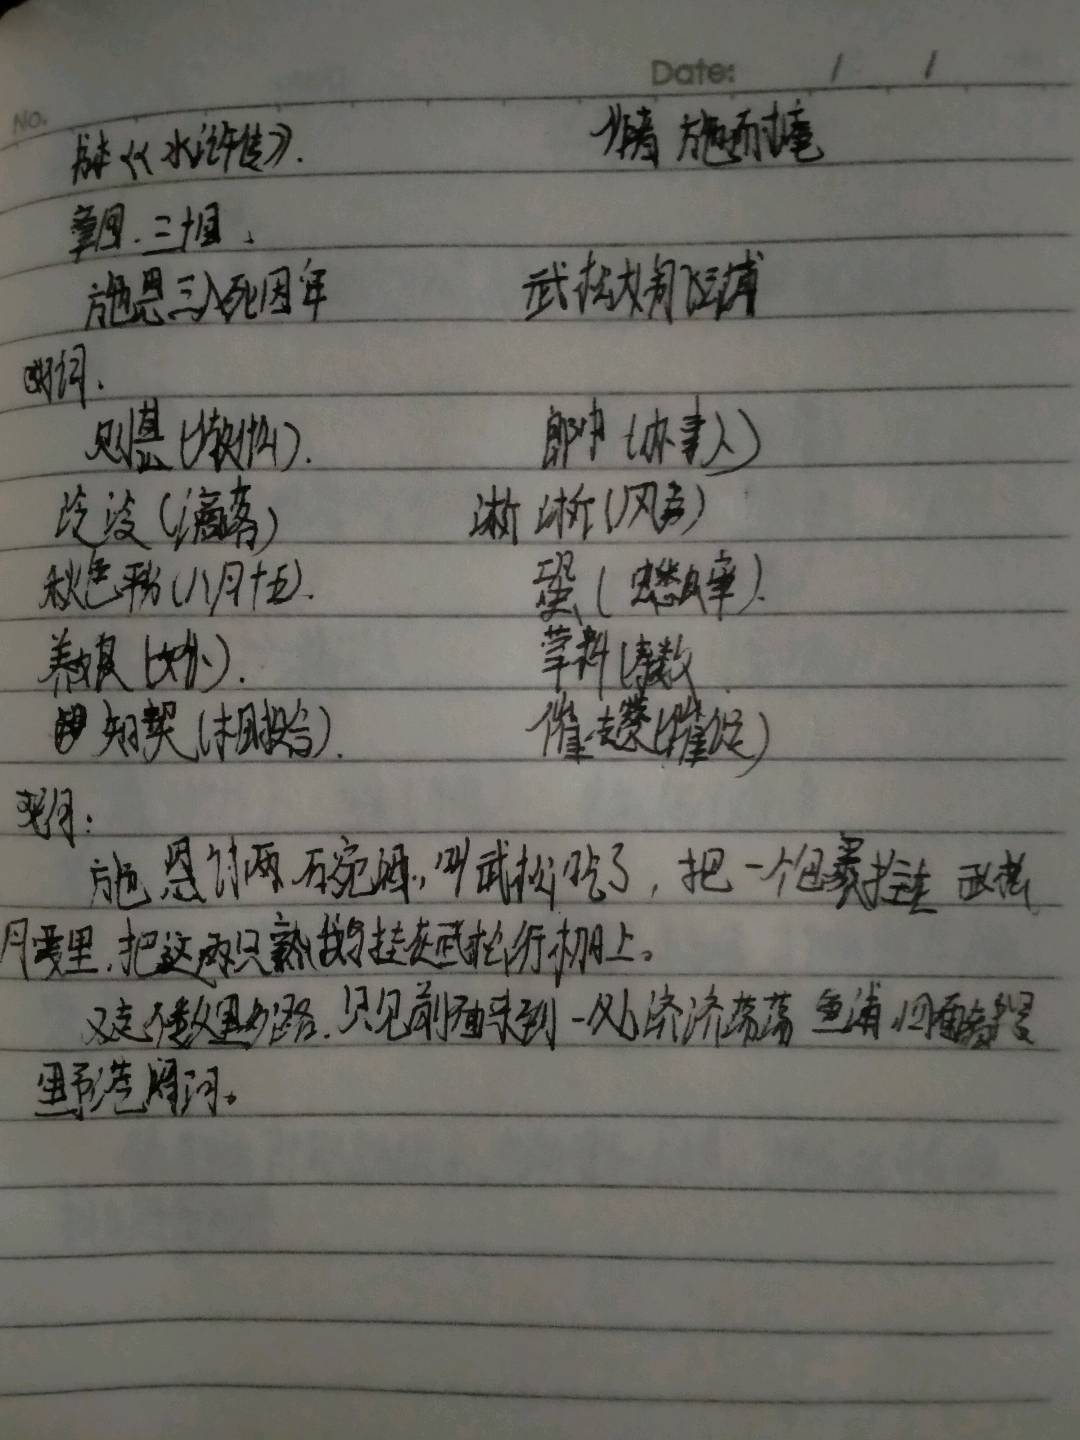 No. Date: / /
书本《水浒传》. 作者 施耐庵
章回. 三十回.
施恩三入死囚牢 武松大闹飞云浦
好词.
则甚(做什么). 郎中(办事人)
泠泠(滴落) 淅淅(风声)
秋色平分(八月十五). 蛩(蟋蟀).
养娘(女仆). 草料(寿数
知契(相投合). 催趱(催促)
好句:
施恩讨两 碗酒,叫武松吃了,把一个包裹拴在 武松
腰里,把这两只熟鹅挂在武松行枷上。
又走不数里多路.只见前面来到一处济济荡荡 鱼浦,四面都是
野港阔河。